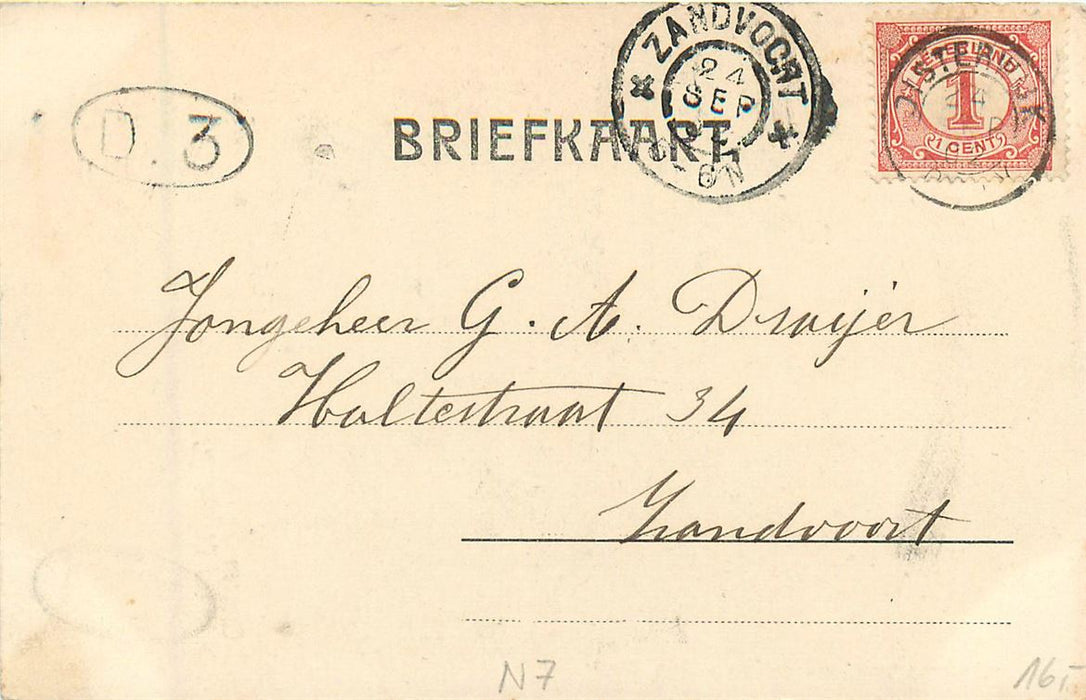 D. 3
BRIEFKAART.
ZANDVOORT
24
SEP
8-9N
NEDERLAND
1
1 CENT
Jongeheer G. A. Druijer
Haltestraat 34
Zandvoort
N7
16,-